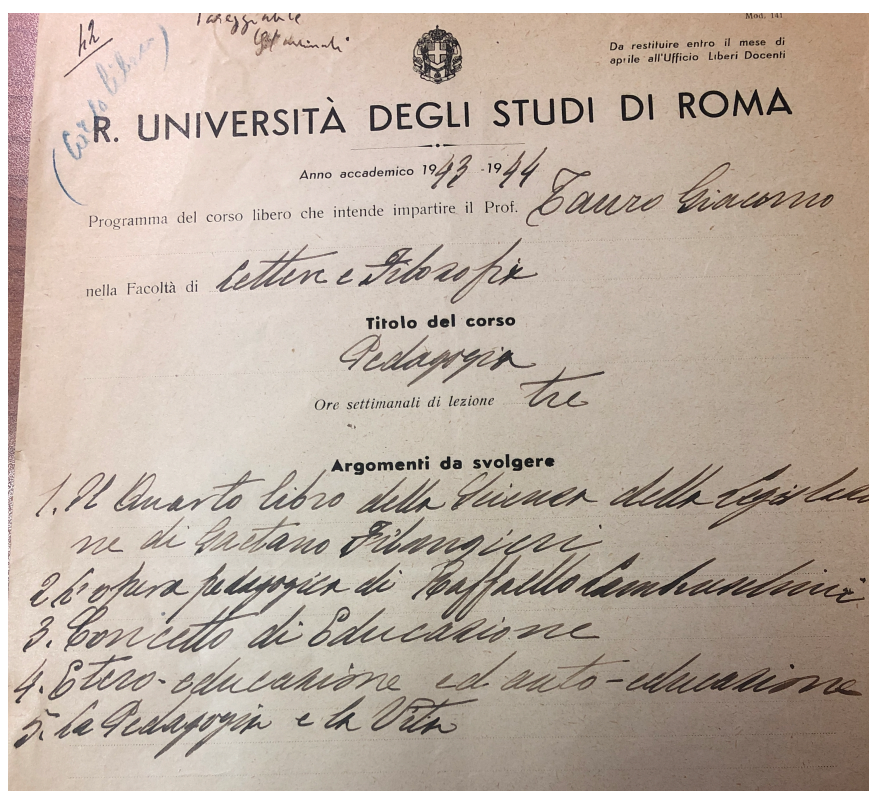 42
Pareggiabile
Mod. 141
(Corso libero)
Da restituire entro il mese di
aprile all'Ufficio Liberi Docenti
R. UNIVERSITÀ DEGLI STUDI DI ROMA
Anno accademico 1943-1944
Programma del corso libero che intende impartire il Prof. Tauro Giacomo
nella Facoltà di Lettere e Filosofia
Titolo del corso
Pedagogia
Ore settimanali di lezione tre
Argomenti da svolgere
1. Il Quarto libro della Scienza della Legislazio
ne di Gaetano Filangieri
2. L'opera pedagogica di Raffaello Lambruschini
3. Concetto di Educazione
4. Etero-educazione ed auto-educazione
5. La Pedagogia e la Vita